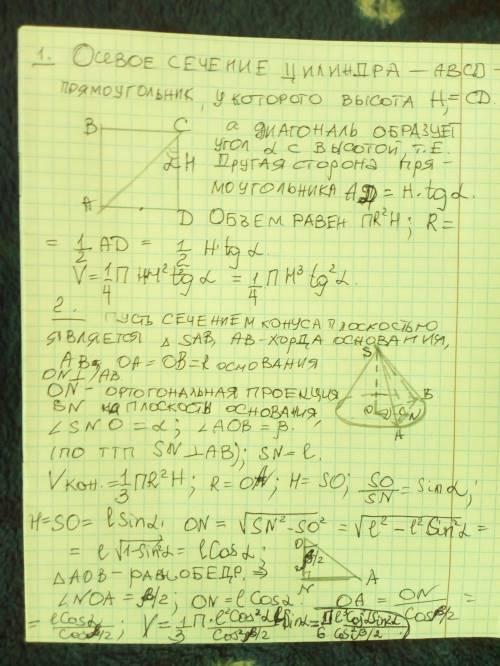 1. Осевое сечение цилиндра – ABCD –
прямоугольник, у которого высота H = CD.
а диагональ образует
угол α с высотой, т.е.
B C
α H
Другая сторона пря-
моугольника AD = H·tgα.
A D
Объем равен ПR²H; R =
= 1/2 AD = 1/2 H·tgα
V = 1/4 П H·H² tg²α = 1/4 ПH³ tg²α.
2. Пусть сечением конуса плоскостью
является △SAB, AB-хорда основания,
OA = OB = R основания
ON⊥AB
S
ON – ортогональная проекция
на плоскость основания
O N B
A
∠SNO = α; ∠AOB = β.
(по ТТП SN⊥AB); SN = l.
V кон. = 1/3 ПR²H; R = OA; H = SO; SO/SN = sinα;
H = SO = l sinα. ON = √SN²-SO² = √l²-l²sin²α =
= l√1-sin²α = l cosα;
O β/2
N A
△AOB – равнобедр. ⇒
∠NOA = β/2; ON = l cosα. OA = ON/cosβ/2 =
= l cosα/cosβ/2;